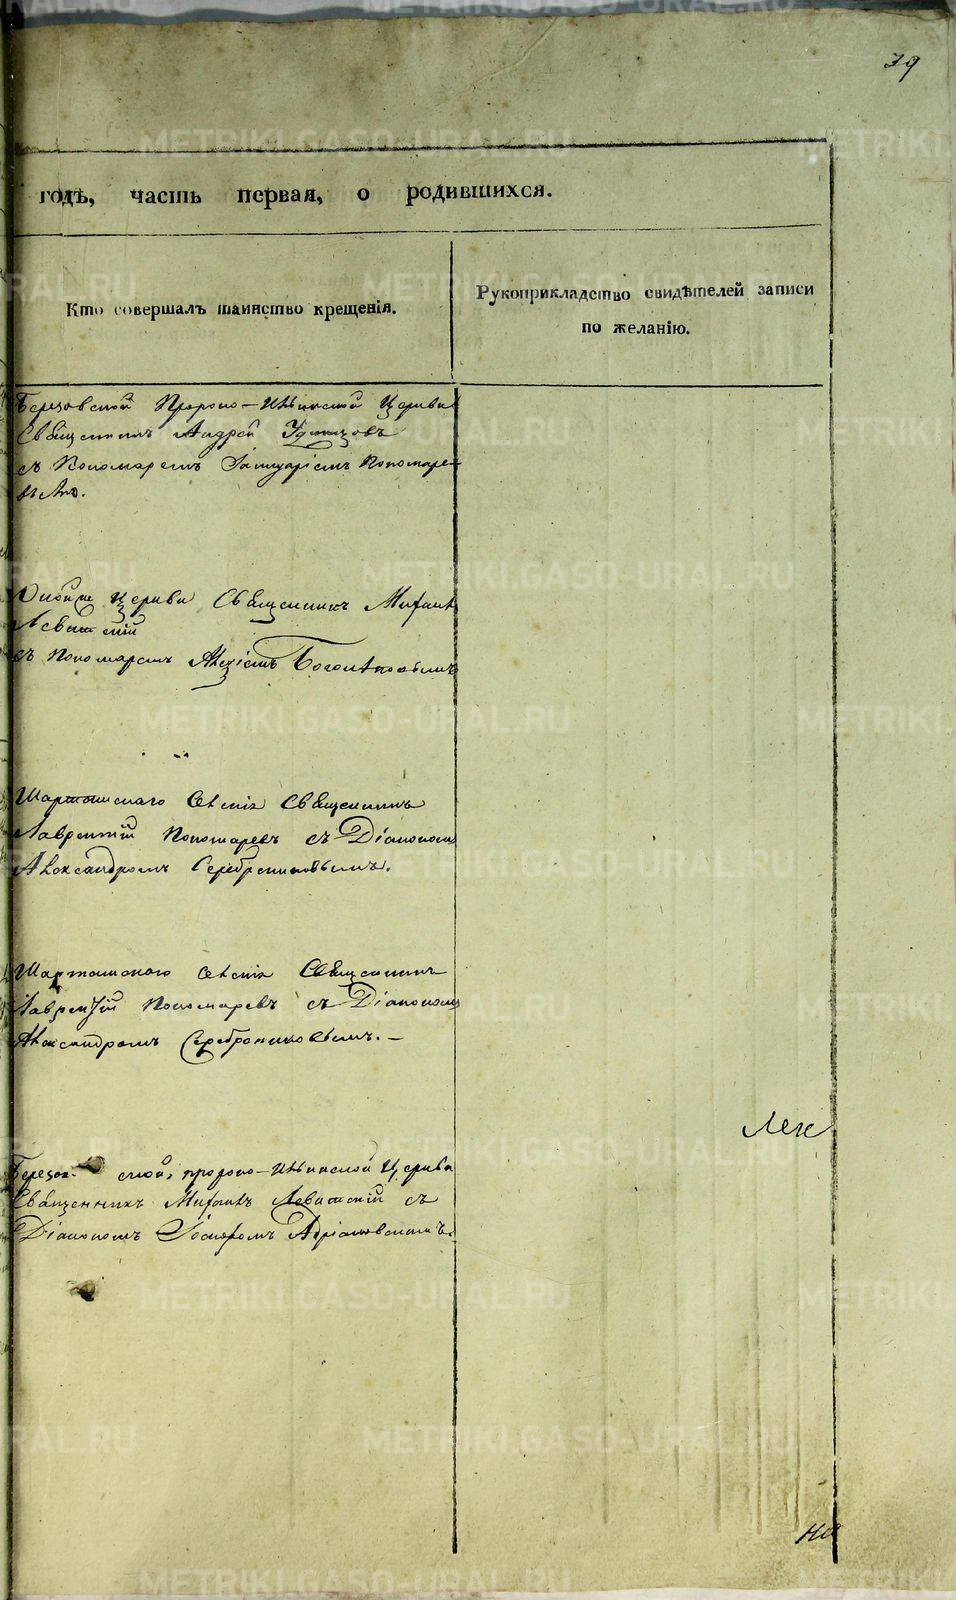 39
годѣ, часть первая, о родившихся.
Кто совершалъ таинство крещенія.
Рукоприкладство свидѣтелей записи
по желанію.
Березовской Пророко-Ильинской Церкви
Священникъ Андрей Удинцовъ
съ Пономаремъ Іануаріемъ Пономаре-
вымъ.
Церкви Священникъ Мифаилъ
Левитскій
съ Пономаремъ Алексіемъ Боголѣповымъ
Шарташскаго Селенія Священникъ
Лаврентій Пономаревъ съ Діакономъ
Александромъ Серебрениковымъ.
Шарташскаго Селенія Священникъ
Лаврентій Пономаревъ съ Діакономъ
Александромъ Серебрениковымъ. —
Березов- ской, пророко-Ильинской Церкви
Священникъ Левитскій съ
Діакономъ Іосифомъ Адріановскимъ.
METRIKI.GASO-URAL.RU